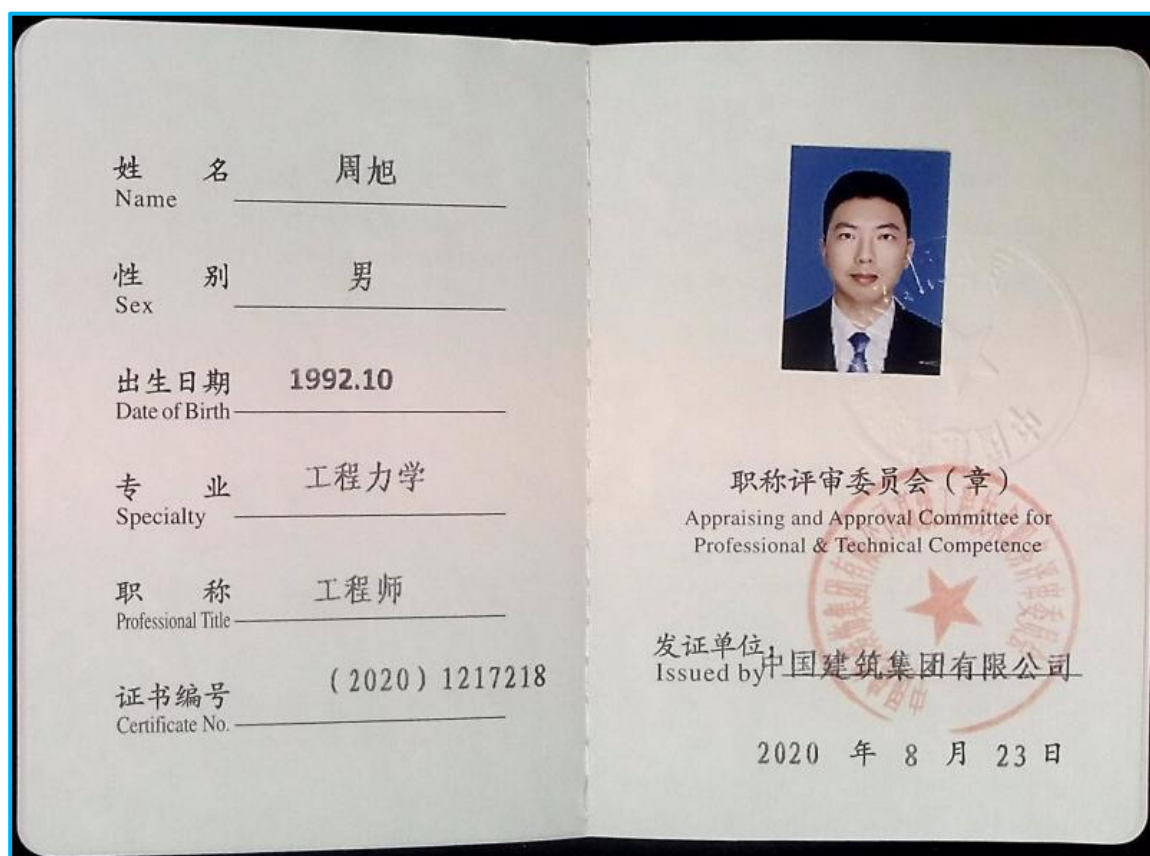 姓名 周旭
Name
性别 男
Sex
出生日期 1992.10
Date of Birth
专业 工程力学
Specialty
职称 工程师
Professional Title
证书编号 (2020) 1217218
Certificate No.
职称评审委员会(章)
Appraising and Approval Committee for
Professional & Technical Competence
发证单位:
Issued by 中国建筑集团有限公司
2020 年 8 月 23 日